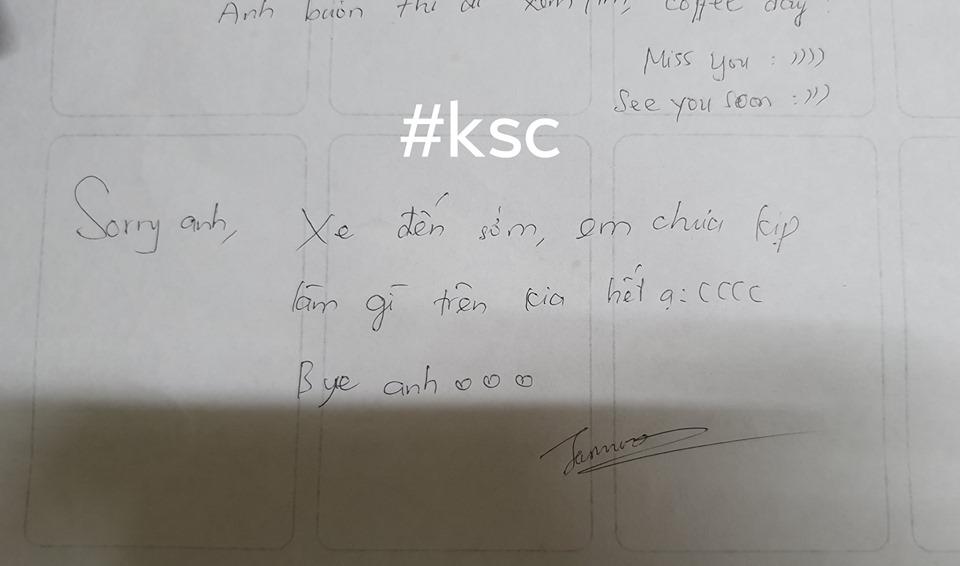 Anh buồn thì coffee đây
Miss you : ))))
See you soon :)))
#ksc
Sorry anh, Xe đến sớm, em chưa kịp
làm gì trên kia hết ạ:CCCC
Bye anh ooo